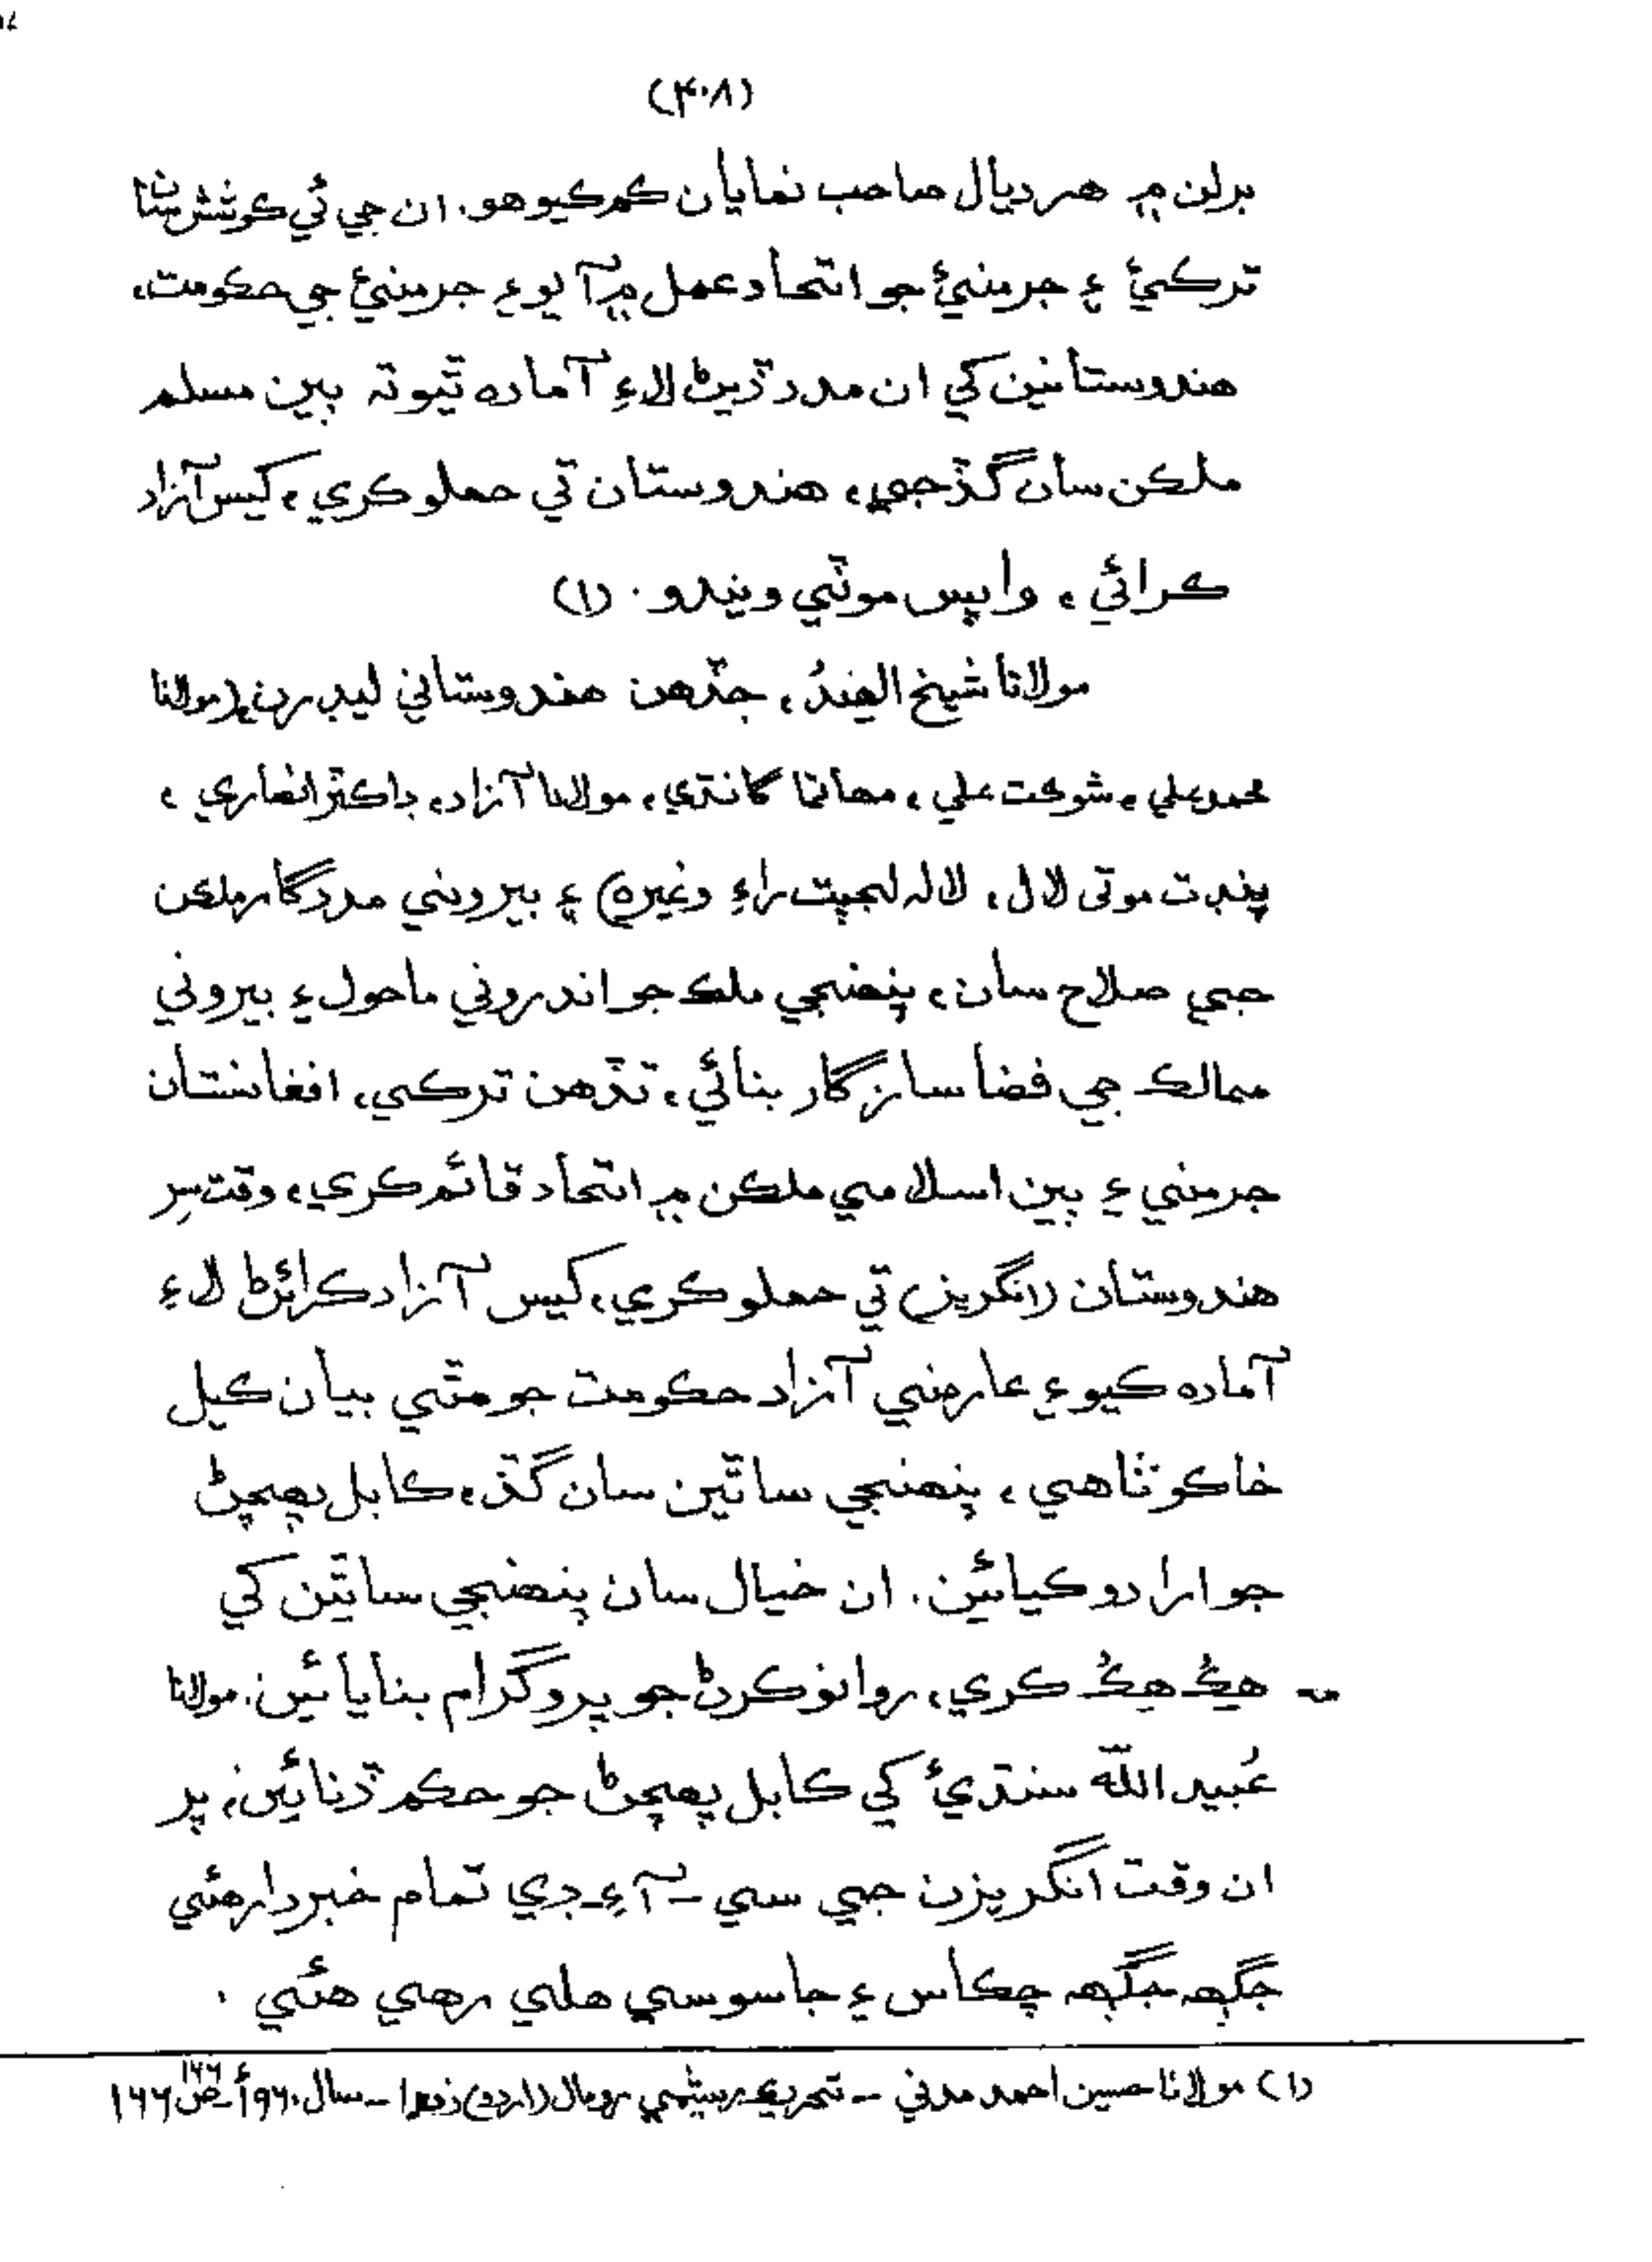 (۴۰۸)
برلن ۾ هرديال صاحب نمايان ڪم ڪيو هو. ان جي ئي ڪوشش سان
ترڪيءَ ۽ جرمنيءَ جو اتحاد عمل ۾ آيو ۽ جرمنيءَ جي حڪومت،
هندوستانين کي ان مدد ڏيڻ لاءِ آماده ٿيو ته ٻين مسلم
ملڪن سان گڏجي، هندوستان تي حملو ڪري، کيس آزاد
ڪرائي، واپس موٽي ويندو. (۱)
مولانا شيخ الهندؒ، جڏهن هندوستاني ليڊرن (مولانا
محمد علي، شوڪت علي، مهاتما گانڌي، مولانا آزاد، ڊاڪٽر انصاري،
پنڊت موتي لال، لاله لجپت راءِ وغيره) ۽ بيروني مددگار ملڪن
جي صلاح سان، پنهنجي ملڪ جو اندروني ماحول ۽ بيروني
ممالڪ جي فضا سازگار بنائي، تڏهن ترڪي، افغانستان
جرمني ۽ ٻين اسلامي ملڪن ۾ اتحاد قائم ڪري، وقت سِر
هندوستان (انگريز) تي حملو ڪري، کيس آزاد ڪرائڻ لاءِ
آماده ڪيو ۽ عارضي آزاد حڪومت جو مٿي بيان ڪيل
خاڪو ٺاهي، پنهنجي ساٿين سان گڏ، ڪابل پهچڻ
جو ارادو ڪيائين. ان خيال سان پنهنجي ساٿين کي
هڪ هڪ ڪري، روانو ڪرڻ جو پروگرام بنايائين. مولانا
عُبيد الله سنڌيءَ کي ڪابل پهچڻ جو حڪم ڏنائين، پر
ان وقت انگريزن جي سي - آءِ - ڊي تمام خبردار هئي
جڳهه جڳهه چڪاس ۽ جاسوسي هلي رهي هئي.
(۱) مولانا حسين احمد مدني - تحريڪ ريشمي رومال (اردو) - سال ۱۹۶۰ع - ص ۱۶۶